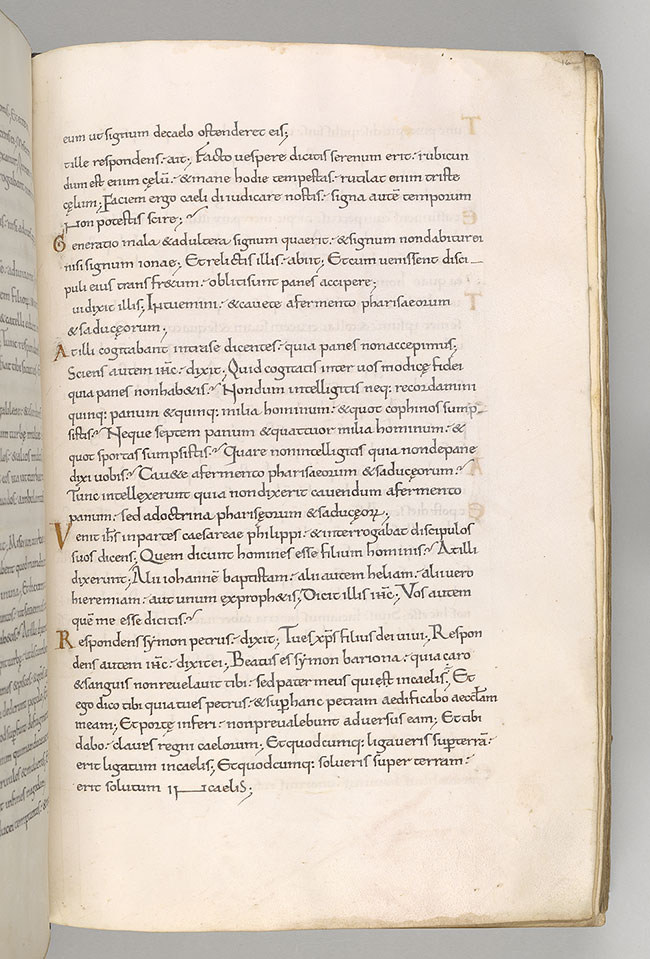 16
eum ut signum decaelo ostenderet eis;
tille respondens· ait; Facto vespere dicitis serenum erit· rubicun
dum est enim cęlū· & mane hodie tempestas· rutilat enim triste
cęlum; Faciem ergo caeli diiudicare nostis· signa autē temporum
Non potestis scire;
Generatio mala & adultera signum quaerit· & signum nondabitur ei
nisi signum ionae; Et relictis illis· abiit; Et cum venissent disci
puli eius trans fr&um· obliti sunt panes accipere;
ui dixit illis; Intuemini· & cavete afermento pharisaeorum
& saducęorum;
At illi cogitabant intra se dicentes· quia panes non accepimus;
Sciens autem ihc· dixit; Quid cogitatis inter vos modicę fidei
quia panes non hab&is· Nondum intelligitis neq: recordamini
quinq: panum & quinq: milia hominum· & quot cophinos sump
sistis· Neque septem panum & quattuor milia hominum· &
quot sportas sumpsistis· Quare non intelligitis quia non depane
dixi vobis· Cau&e afermento pharisaeorum & saducęorum·
Tunc intellexerunt quia non dixerit cavendum afermento
panum· sed adoctrina pharisęorum & saducęorꝝ;
Venit ihs in partes caesareae philippi· & interrogabat discipulos
suos dicens; Quem dicunt homines esse filium hominis· At illi
dixerunt; Alii iohannē baptistam· alii autem heliam· alii vero
hieremiam· aut unum exproph&is; Dicit illis ihc; Vos autem
quē me esse dicitis·
Respondens symon petrus· dixit; Tu es xps filius dei vivi; Respon
dens autem ihc· dixit ei; Beatus es symon bariona· quia caro
& sanguis non revelavit tibi· sed pater meus qui est incaelis; Et
ego dico tibi quia tu es petrus· & sup hanc petram aedificabo aecclam
meam; Et portę inferi· non prevalebunt adversus eam; Et tibi
dabo· claves regni caelorum; Et quodcumq: ligaveris sup terrā·
erit ligatum incaelis; Et quodcumq: solveris super terram·
erit solutum in caelis;